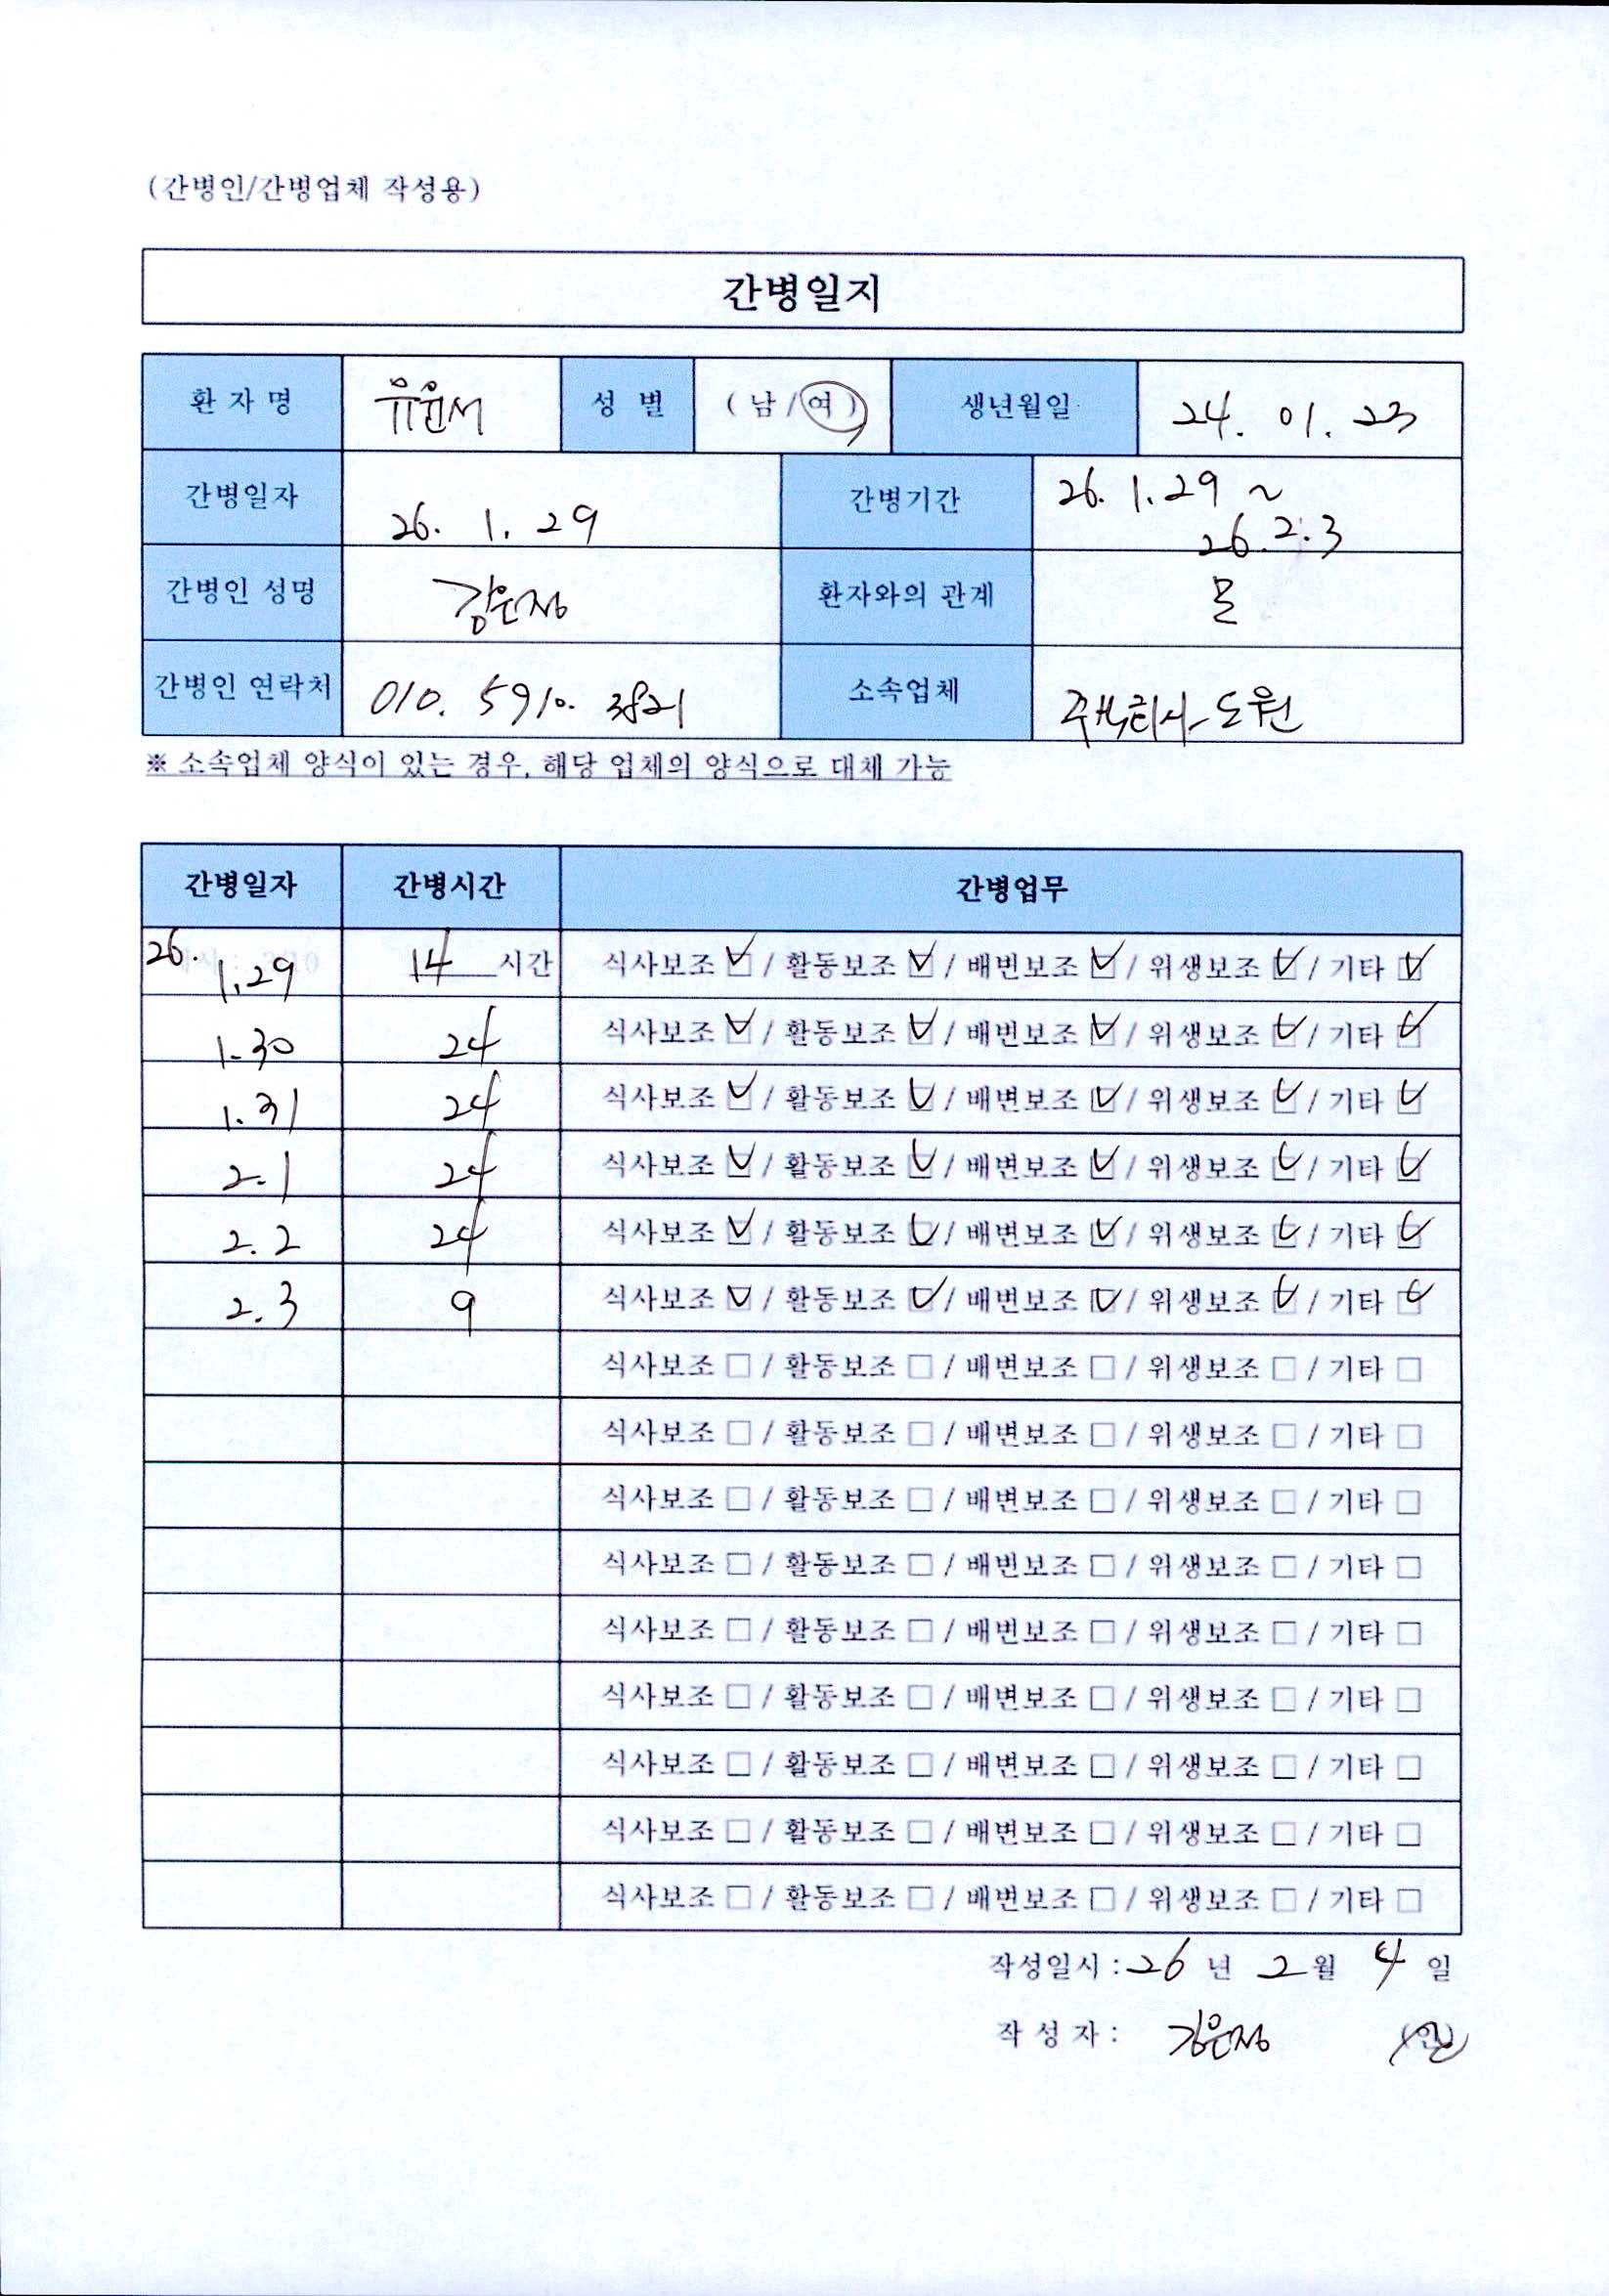 (간병인/간병업체 작성용)
간병일지
환 자 명 유윤서 성 별 ( 남 / 여 ) 생년월일 24. 01. 23
간병일자 26. 1. 29 간병기간 26. 1. 29 ~ 26. 2. 3
간병인 성명 김은정 환자와의 관계
간병인 연락처 010. 5910. 3821 소속업체 주식회사 도원
※ 소속업체 양식이 있는 경우, 해당 업체의 양식으로 대체 가능
간병일자 간병시간 간병업무
26. 1. 29 14 시간 식사보조 ☑ / 활동보조 ☑ / 배변보조 ☑ / 위생보조 ☑ / 기타 ☑
1. 30 24 식사보조 ☑ / 활동보조 ☑ / 배변보조 ☑ / 위생보조 ☑ / 기타 ☑
1. 31 24 식사보조 ☑ / 활동보조 ☑ / 배변보조 ☑ / 위생보조 ☑ / 기타 ☑
2. 1 24 식사보조 ☑ / 활동보조 ☑ / 배변보조 ☑ / 위생보조 ☑ / 기타 ☑
2. 2 24 식사보조 ☑ / 활동보조 ☑ / 배변보조 ☑ / 위생보조 ☑ / 기타 ☑
2. 3 9 식사보조 ☑ / 활동보조 ☑ / 배변보조 ☑ / 위생보조 ☑ / 기타 ☑
식사보조 □ / 활동보조 □ / 배변보조 □ / 위생보조 □ / 기타 □
식사보조 □ / 활동보조 □ / 배변보조 □ / 위생보조 □ / 기타 □
식사보조 □ / 활동보조 □ / 배변보조 □ / 위생보조 □ / 기타 □
식사보조 □ / 활동보조 □ / 배변보조 □ / 위생보조 □ / 기타 □
식사보조 □ / 활동보조 □ / 배변보조 □ / 위생보조 □ / 기타 □
식사보조 □ / 활동보조 □ / 배변보조 □ / 위생보조 □ / 기타 □
식사보조 □ / 활동보조 □ / 배변보조 □ / 위생보조 □ / 기타 □
식사보조 □ / 활동보조 □ / 배변보조 □ / 위생보조 □ / 기타 □
식사보조 □ / 활동보조 □ / 배변보조 □ / 위생보조 □ / 기타 □
작성일시 : 26 년 2 월 4 일
작 성 자 : 김은정 (인)